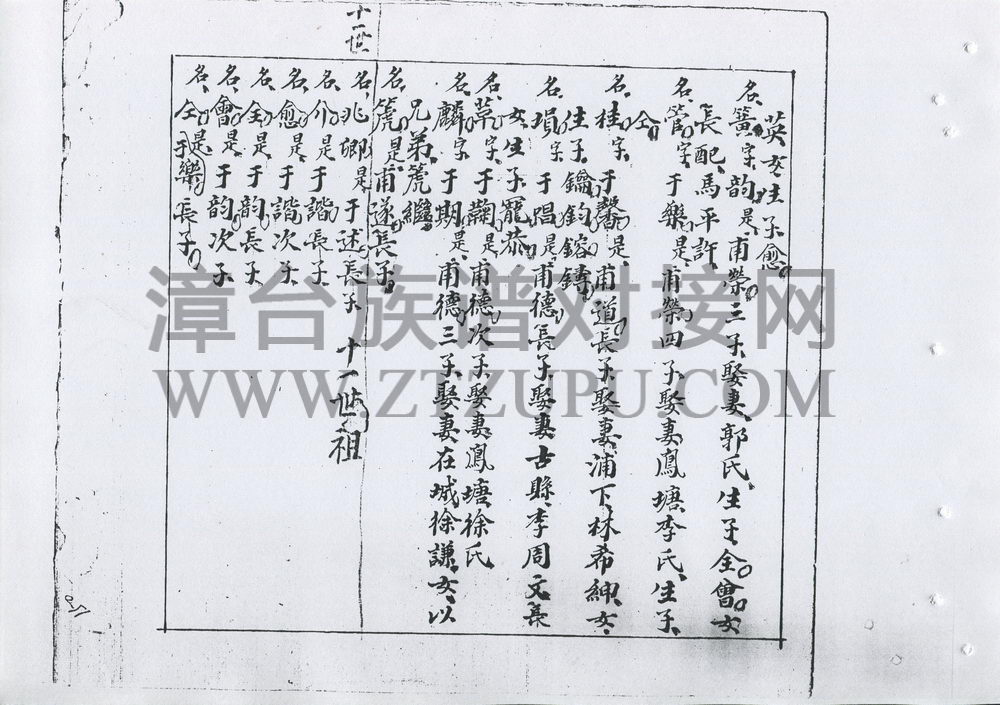 英女生子愈
名簧字韵是甫榮三子娶妻郭氏生子全會女
長配馬平許
名管字于樂是甫榮四子娶妻鳳塘李氏生子
仝
名桂字于馨是甫道長子娶妻浦下林希紳女
生子鑰鈞鎔鑄
名塤字于唱是甫德長子娶妻古縣李周文長
女生子寵恭
名草字于蘜是甫德次子娶妻鳳塘徐氏
名麟字于期是甫德三子娶妻在城徐謙女以
兄弟箎繼
名箎是甫遂長子
名兆卿是于述長子 十一世祖
名介是于諧長子
名愈是于諧次子
名全是于韵長子
名會是于韵次子
名仝是于樂長子
十一世
漳台族谱对接网
WWW.ZTZUPU.COM